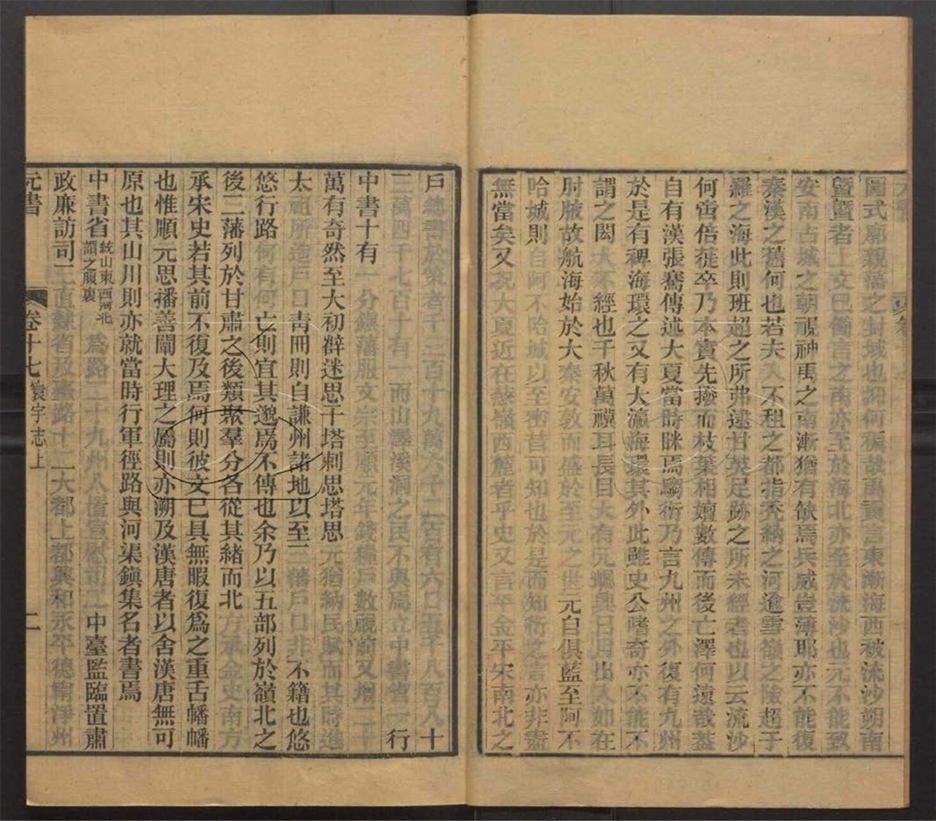 圖式廓親藩之封域也 何 哉禹貢言東漸海西被流沙朔南
暨暨者上文已備言之南亦至於海北亦至於流沙也元不能致
安南占城之朝視神禹之南漸猶有歉焉兵威豈薄耶亦不能復
秦漢之舊何也若夫入不租之都指禿納之河逾雪嶺之險超于
羅之海此則班超之所弗逮甘英足跡之所未經者也以云流沙
何啻倍蓰卒乃本實先撥而枝葉相嬗數傳而後亡澤何遠哉蓋
自有漢張騫傳述大夏當時眯焉騶衍乃言九州之外復有九州
於是有裨海環之又有大瀛海環其外此雖史公嗜奇亦不能不
謂之閎大不經也千秋萬禩耳長目 有元 興日日出入如在
肘腋故航海始於大秦安敦而盛於至元之世元自俱藍至阿不
哈城則自阿不哈城以至密昔可知也於是而知衍之言亦非盡
無當矣又況大夏近在葱嶺西麓者乎史又言平金平宋南北之
戶總書於策者千 百 十九萬六千二百有六口 千八百八十
二萬四千七百十有一而山澤溪洞之民不與焉立中書省一行
中書十有一分鎮藩服文宗至順元年錢糧戶數視前又增二十
萬有奇然至大初辥迷思干塔剌思塔思 元猶納民賦而其時進
太祖所造戶口青冊則自謙州諸地以至二藩戶口非不籍也悠
悠行路何有何亡則宜其邈焉不傳也余乃以五部列於嶺北之
後二藩列於甘肅之後類聚羣分各從其緒而北方承金史南方
承宋史若其前不復及焉何則彼文已具無暇復爲之重舌幡幡
也惟順元思播善闡大理之屬則亦溯及漢唐者以舍漢唐無可
原也其山川則亦就當時行軍徑路與河渠鎭集名者書焉
中書省統山東西河北謂之腹裏爲路二十九州八置宣慰司二中臺監臨置肅
政廉訪司二直隸省及臺路十一大都上都興和永平德寧淨州
元書 卷十七寰宇志上 二